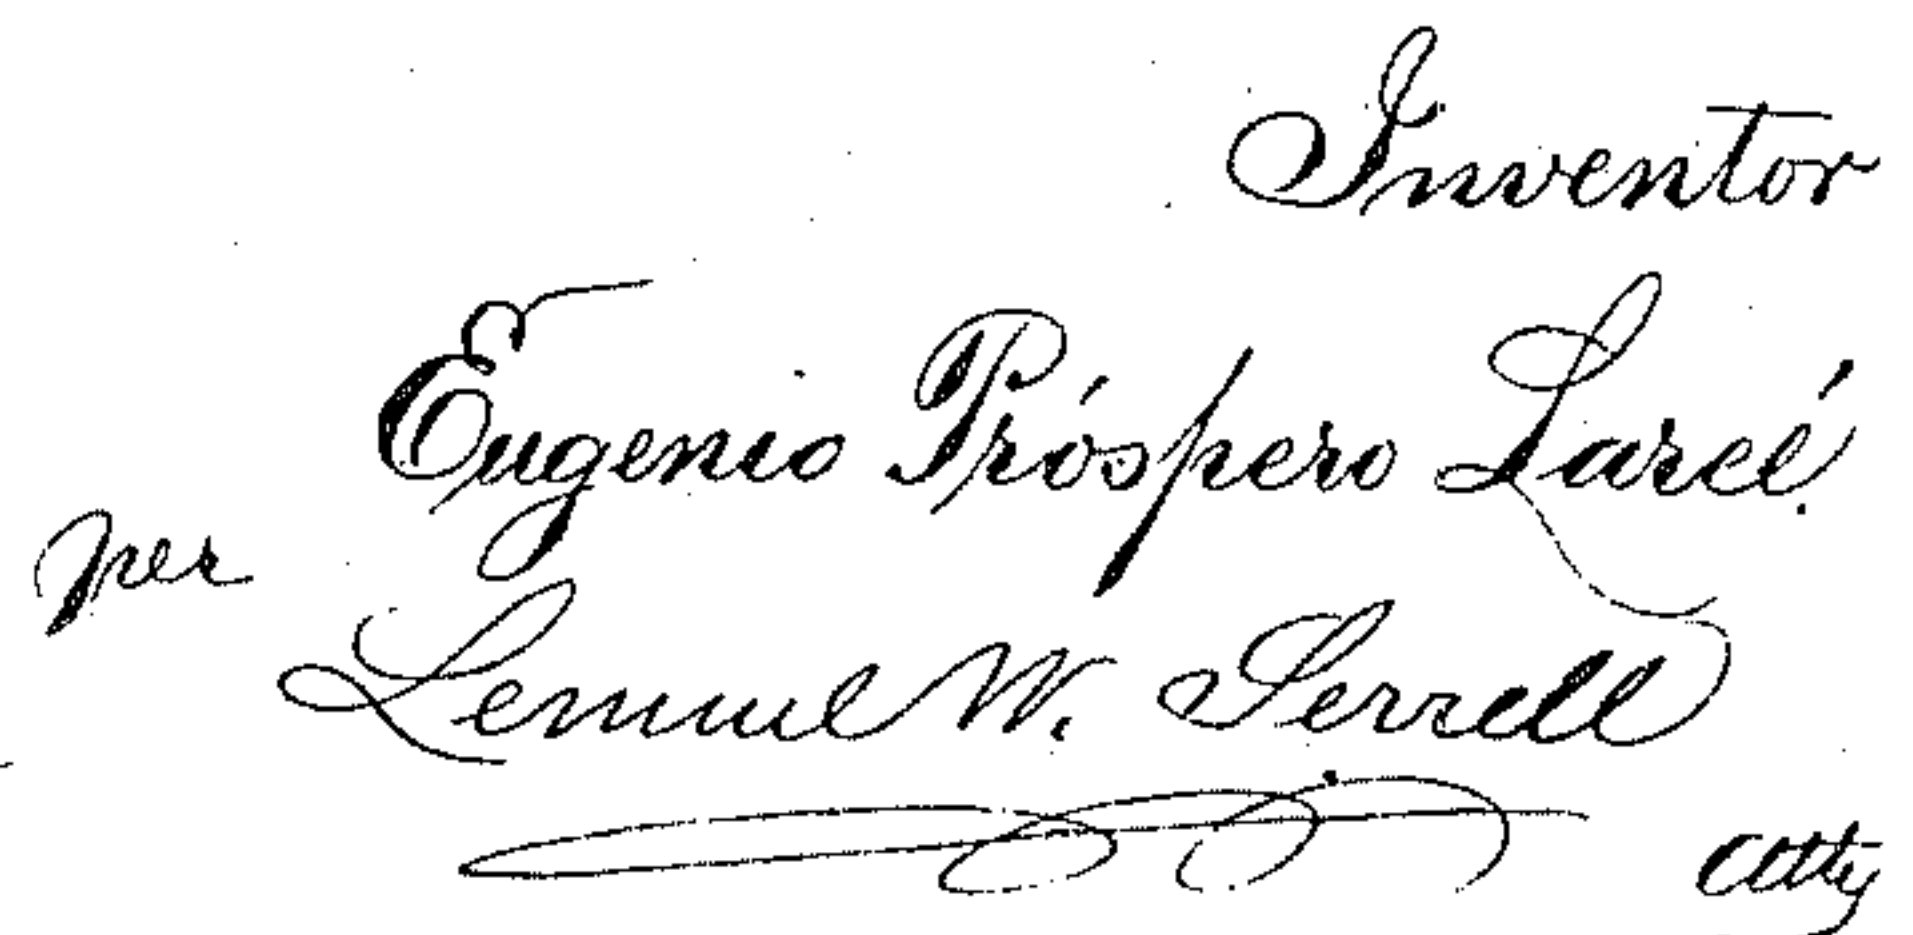 Inventor
Eugenio Próspero Larcé.
per
Lemuel W. Serrell
atty